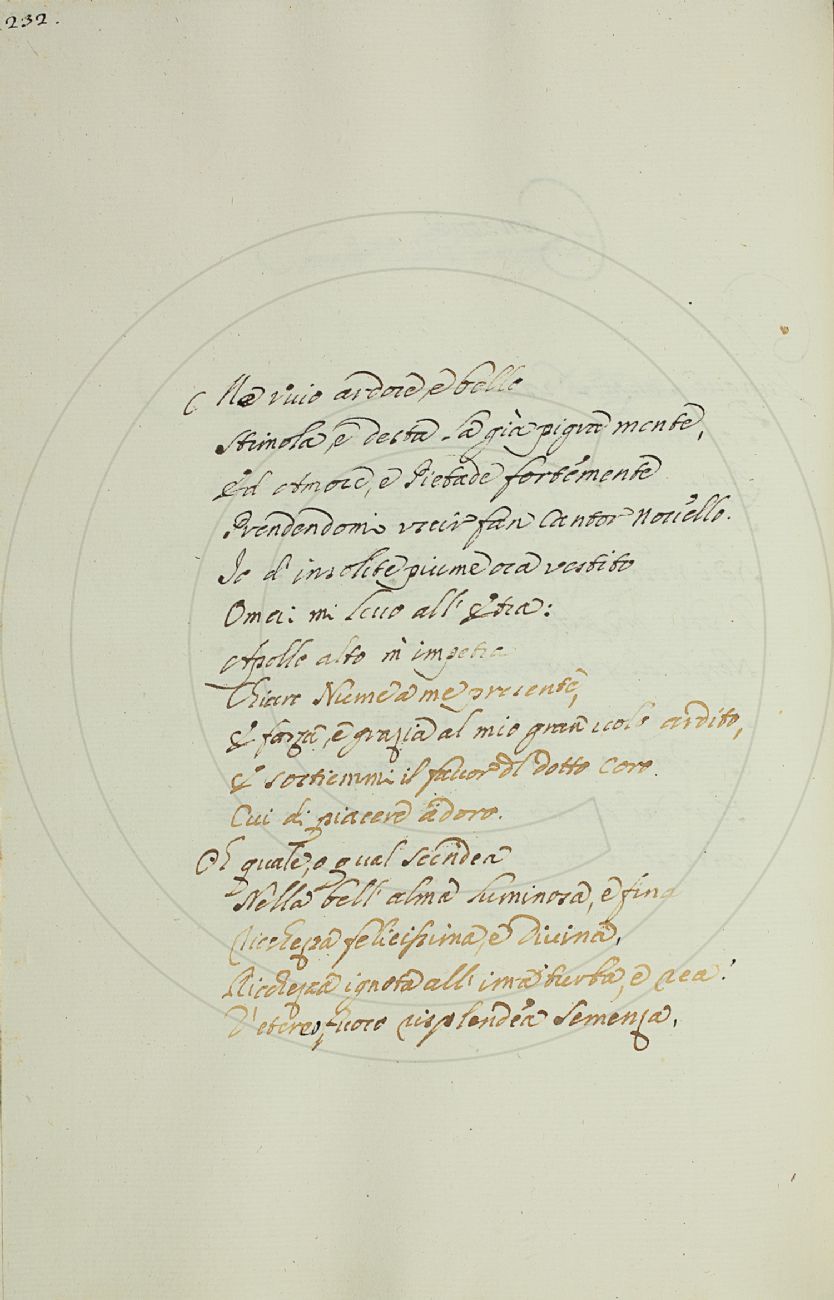 232.
Me vivo ardore, e bello
Stimola, e desta la già pigra mente,
Ed Amore, e Pietade fortemente
Prendendomi uscir fan Cantor novello.
Io d' insolite piume ora vestito
Omai mi levo all' Etra:
Apollo alto m' impetra
Chiaro Nume a me presente,
E forza, e grazia al mio gran volo ardito,
E sortiemmi il favor del dotto Coro
Cui di piacere adoro.
Oh quale, o qual scendea
Nella bell' alma luminosa, e fina
Ricchezza felicissima, e Divina,
Ricchezza ignota all' ima turba, e rea!
D' etereo fuoco risplendea semenza,